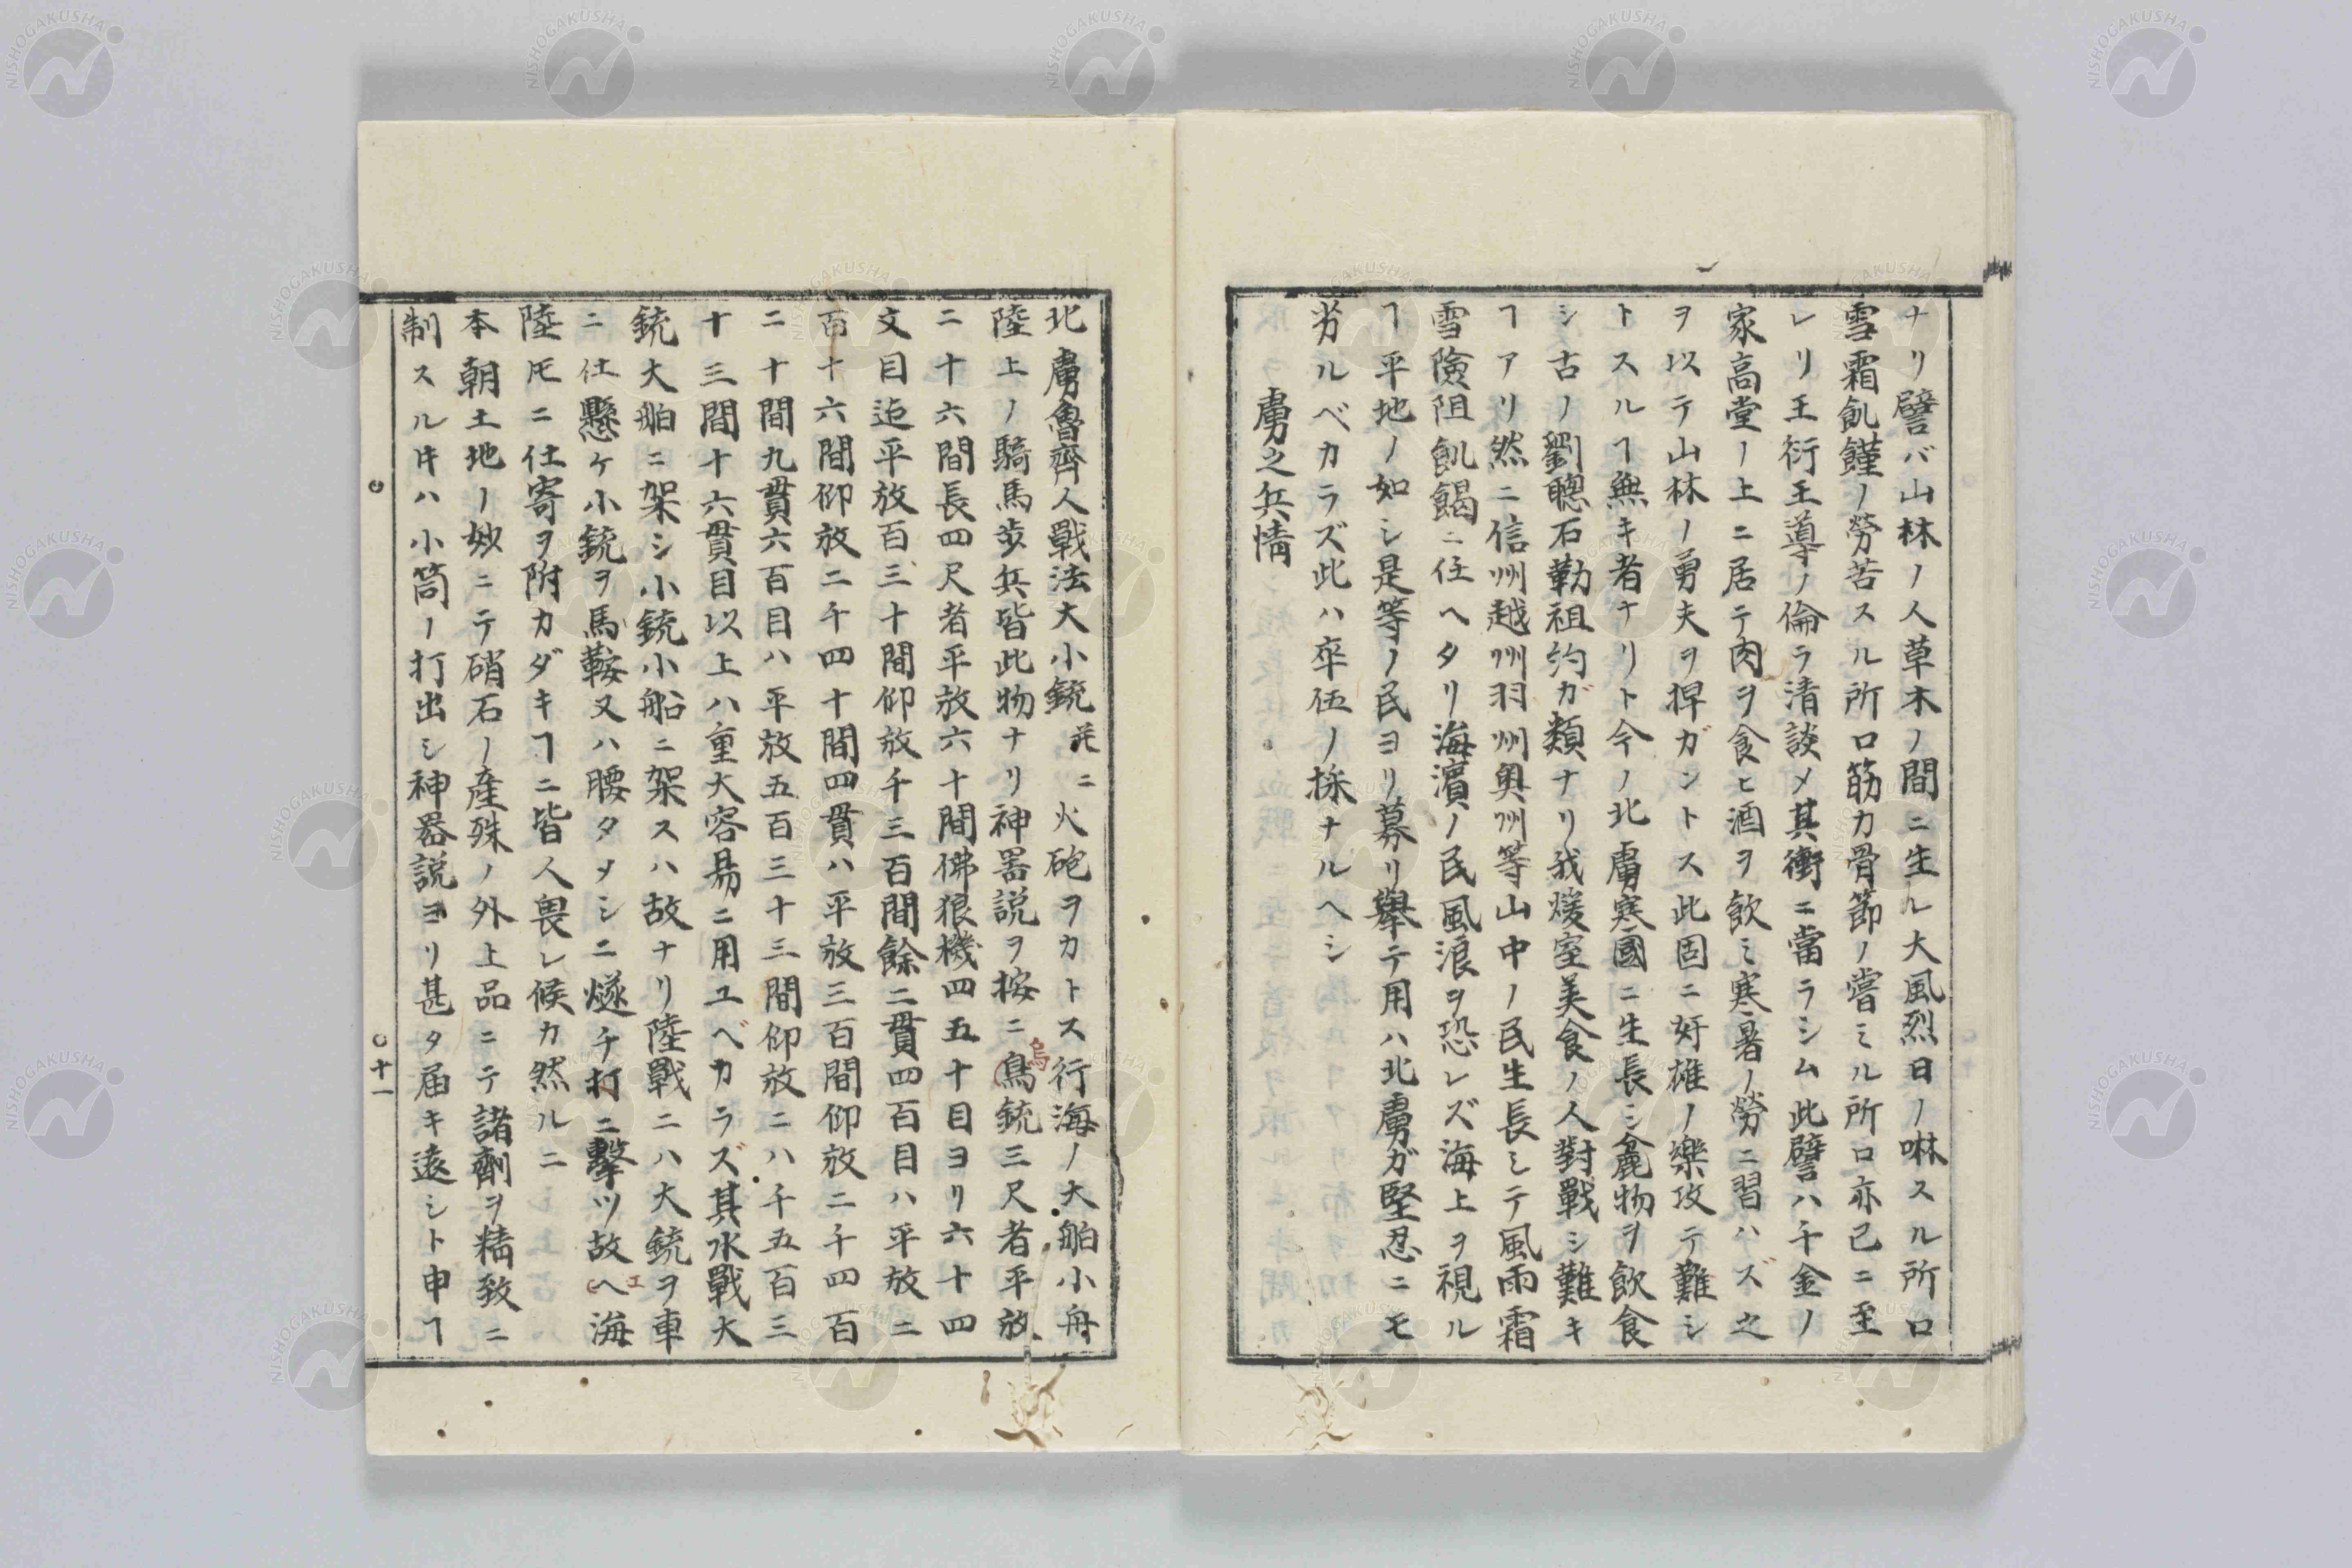 ナリ譬バ山林ノ人草木ノ間ニ生ル大風烈日ノ啉スル所ロ
雪霜飢饉ノ勞苦スル所ロ筋力骨節ノ嘗ミル所ロ亦已ニ至
レリ王衍王導ノ倫ラ清談メ其衝ニ當ラシム此譬ハ千金ノ
家高堂ノ上ニ居テ肉ヲ食ヒ酒ヲ飲ミ寒暑ノ勞ニ習ハズ之
ヲ以テ山林ノ勇夫ヲ捍ガントス此固ニ奸雄ノ樂攻テ難シ
トスルヿ無キ者ナリト今ノ北虜寒國ニ生長シ麁物ヲ飲食
シ古ノ劉聰石勒祖約ガ類ナリ我煖室美食ノ人對戰シ難キ
ヿアリ然ニ信州越州羽州奥州等山中ノ民生長シテ風雨霜
雪險阻飢餲ニ任ヘタリ海濱ノ民風浪ヲ恐レズ海上ヲ視ル
ヿ平地ノ如シ是等ノ民ヨリ募リ擧テ用ハ北虜ガ堅忍ニモ
劣ルベカラズ此ハ卒伍ノ採ナルヘシ
虜之兵情
北虜魯齊人戰法大小銃𠀋ニ火砲ヲカトス行海ノ大舶小舟
陸上ノ騎馬歩兵皆此物ナリ神器説ヲ按ニ鳥銃三尺者平放
烏
二十六間長四尺者平放六十間佛狼機四五十目ヨリ六十四
文目迠平放百三十間仰放千三百間餘二貫四百目ハ平放二
百十六間仰放二千四十間四貫ハ平放三百間仰放二千四百
二十間九貫六百目ハ平放五百三十三間仰放ニハ千五百三
十三間十六貫目以上ハ重大容易ニ用ユベカラズ其水戰大
銃大舶ニ架シ小銃小船ニ架スハ故ナリ陸戰ニハ大銃ヲ車
ニ仕懸ケ小銃ヲ馬鞍又ハ腰タメシニ燧チ打ニ擊ツ故ヘ海
エ
陸𪜈ニ仕寄ヲ附カダキヿニ皆人畏レ候カ然ルニ
本朝土地ノ妙ニテ硝石ノ産殊ノ外上品ニテ諸劑ヲ精致ニ
制スル𪜈ハ小筒ノ打出シ神器説ヨリ甚タ届キ遠シト申ヿ
十一
NISHOGAKUSHA